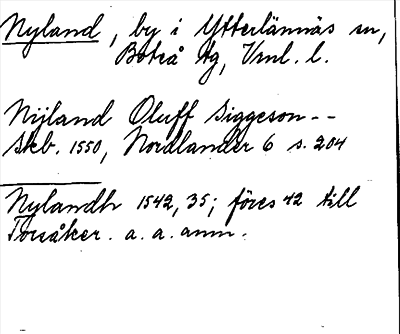 Nyland, by i Ytterlännäs sn,
Boteå tg, Vnl. l.
Nijland Oluff Siggeson--
Skb. 1550, Nordlander 6 s. 204
Nylandh 1542, 35; föres 42 till
Torsåker. a. a. anm.